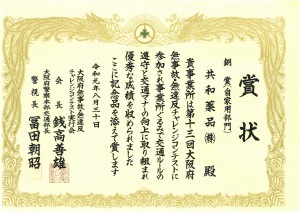 賞状
銅賞(自家用部門)
共和薬品㈱ 殿
貴事業所は第十三回大阪府
無事故・無違反チャレンジコンテストに
参加され事業所ぐるみで交通ルールの
遵守と交通マナーの向上に取り組まれ
優秀な成績を収められました
ここに記念品を添えて賞します
令和元年八月三十日
大阪府無事故・無違反
チャレンジコンテスト実行委員会
会長 銭高善雄
大阪府警察本部交通部長
警視長 冨田朝昭